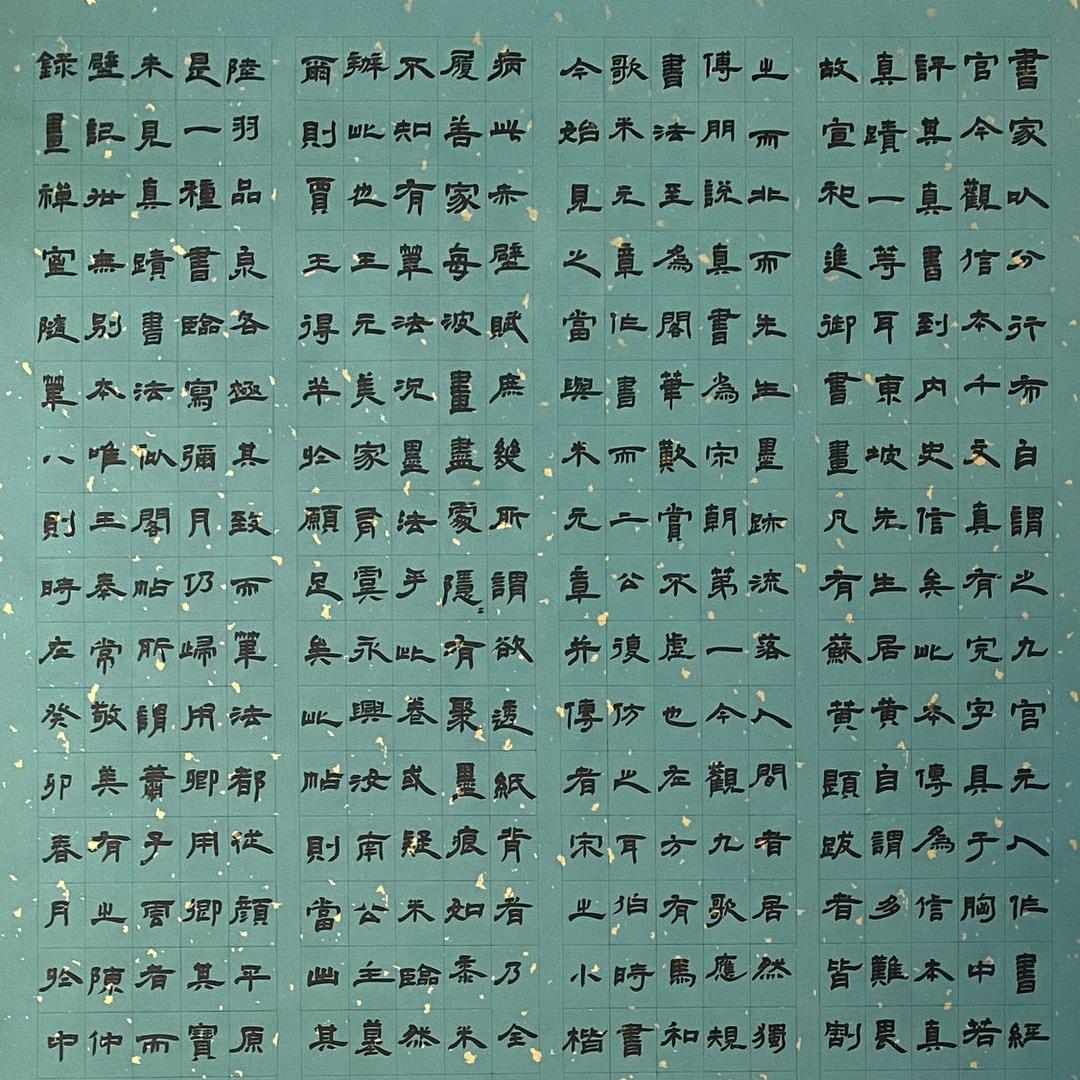 書家以分行布白謂之九宮元人作書經
宮今觀信本千文真有完字具于胸中若
評其真書到內史信矣此本傳為信本真
真蹟一等耳東坡先生居黃自謂多難畏
故宣和進御書畫凡有蘇黃題跋者皆割
之而北而先生墨跡流落人間者居然獨
傅朋說真書為宋朝第一今觀九歌應規
書法至為閣筆歎賞不虛也左方有馬和
歌米元章作書而二公復仿之耳伯時書
今始見之當與米元章并傳者宋之小楷
病此亦壁賦庶幾所謂欲透紙背者乃全
履善家每波畫盡處隱隱有聚墨痕如黍米
不知有筆法況墨法乎此卷或疑米臨然
辦此也王元美家有虞永興汝南公主墓
爾則賈王得半於願足矣此帖則當山其
陸羽品泉各極其致而筆法都從顏平原
是一種書臨寫彌月仍歸用卿用卿其寶
未見真蹟書法似閣帖所謂蕭子雲有而
壁記世無別本唯王奉常敬美有之陳仲
錄畫禪室隨筆八則時在癸卯春月於中